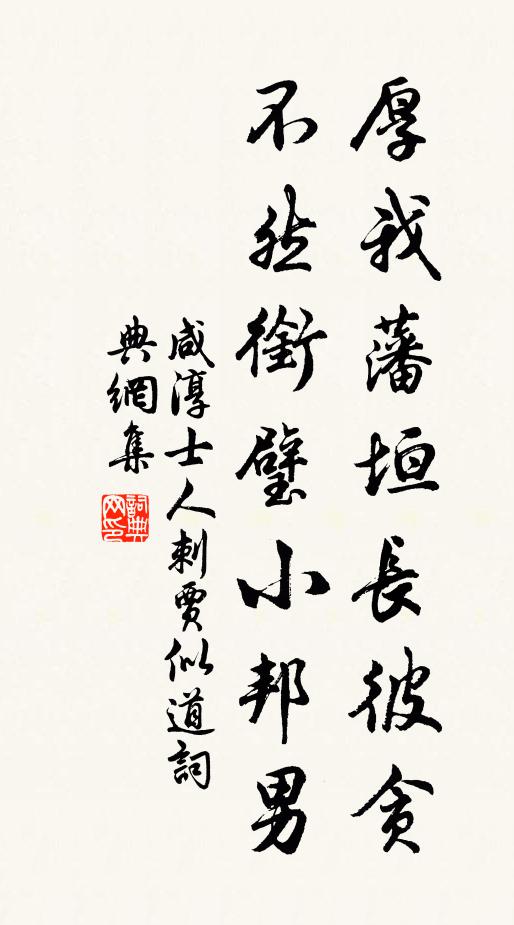 厚我藩垣長彼貪
不然銜璧小邦男
咸淳士人刺賈似道詞
典網集
詞典网印